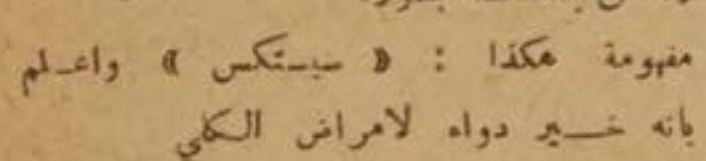 مفهومة هكذا : « سيستكس » واعلم
بانه خير دواء لامراض الكلي